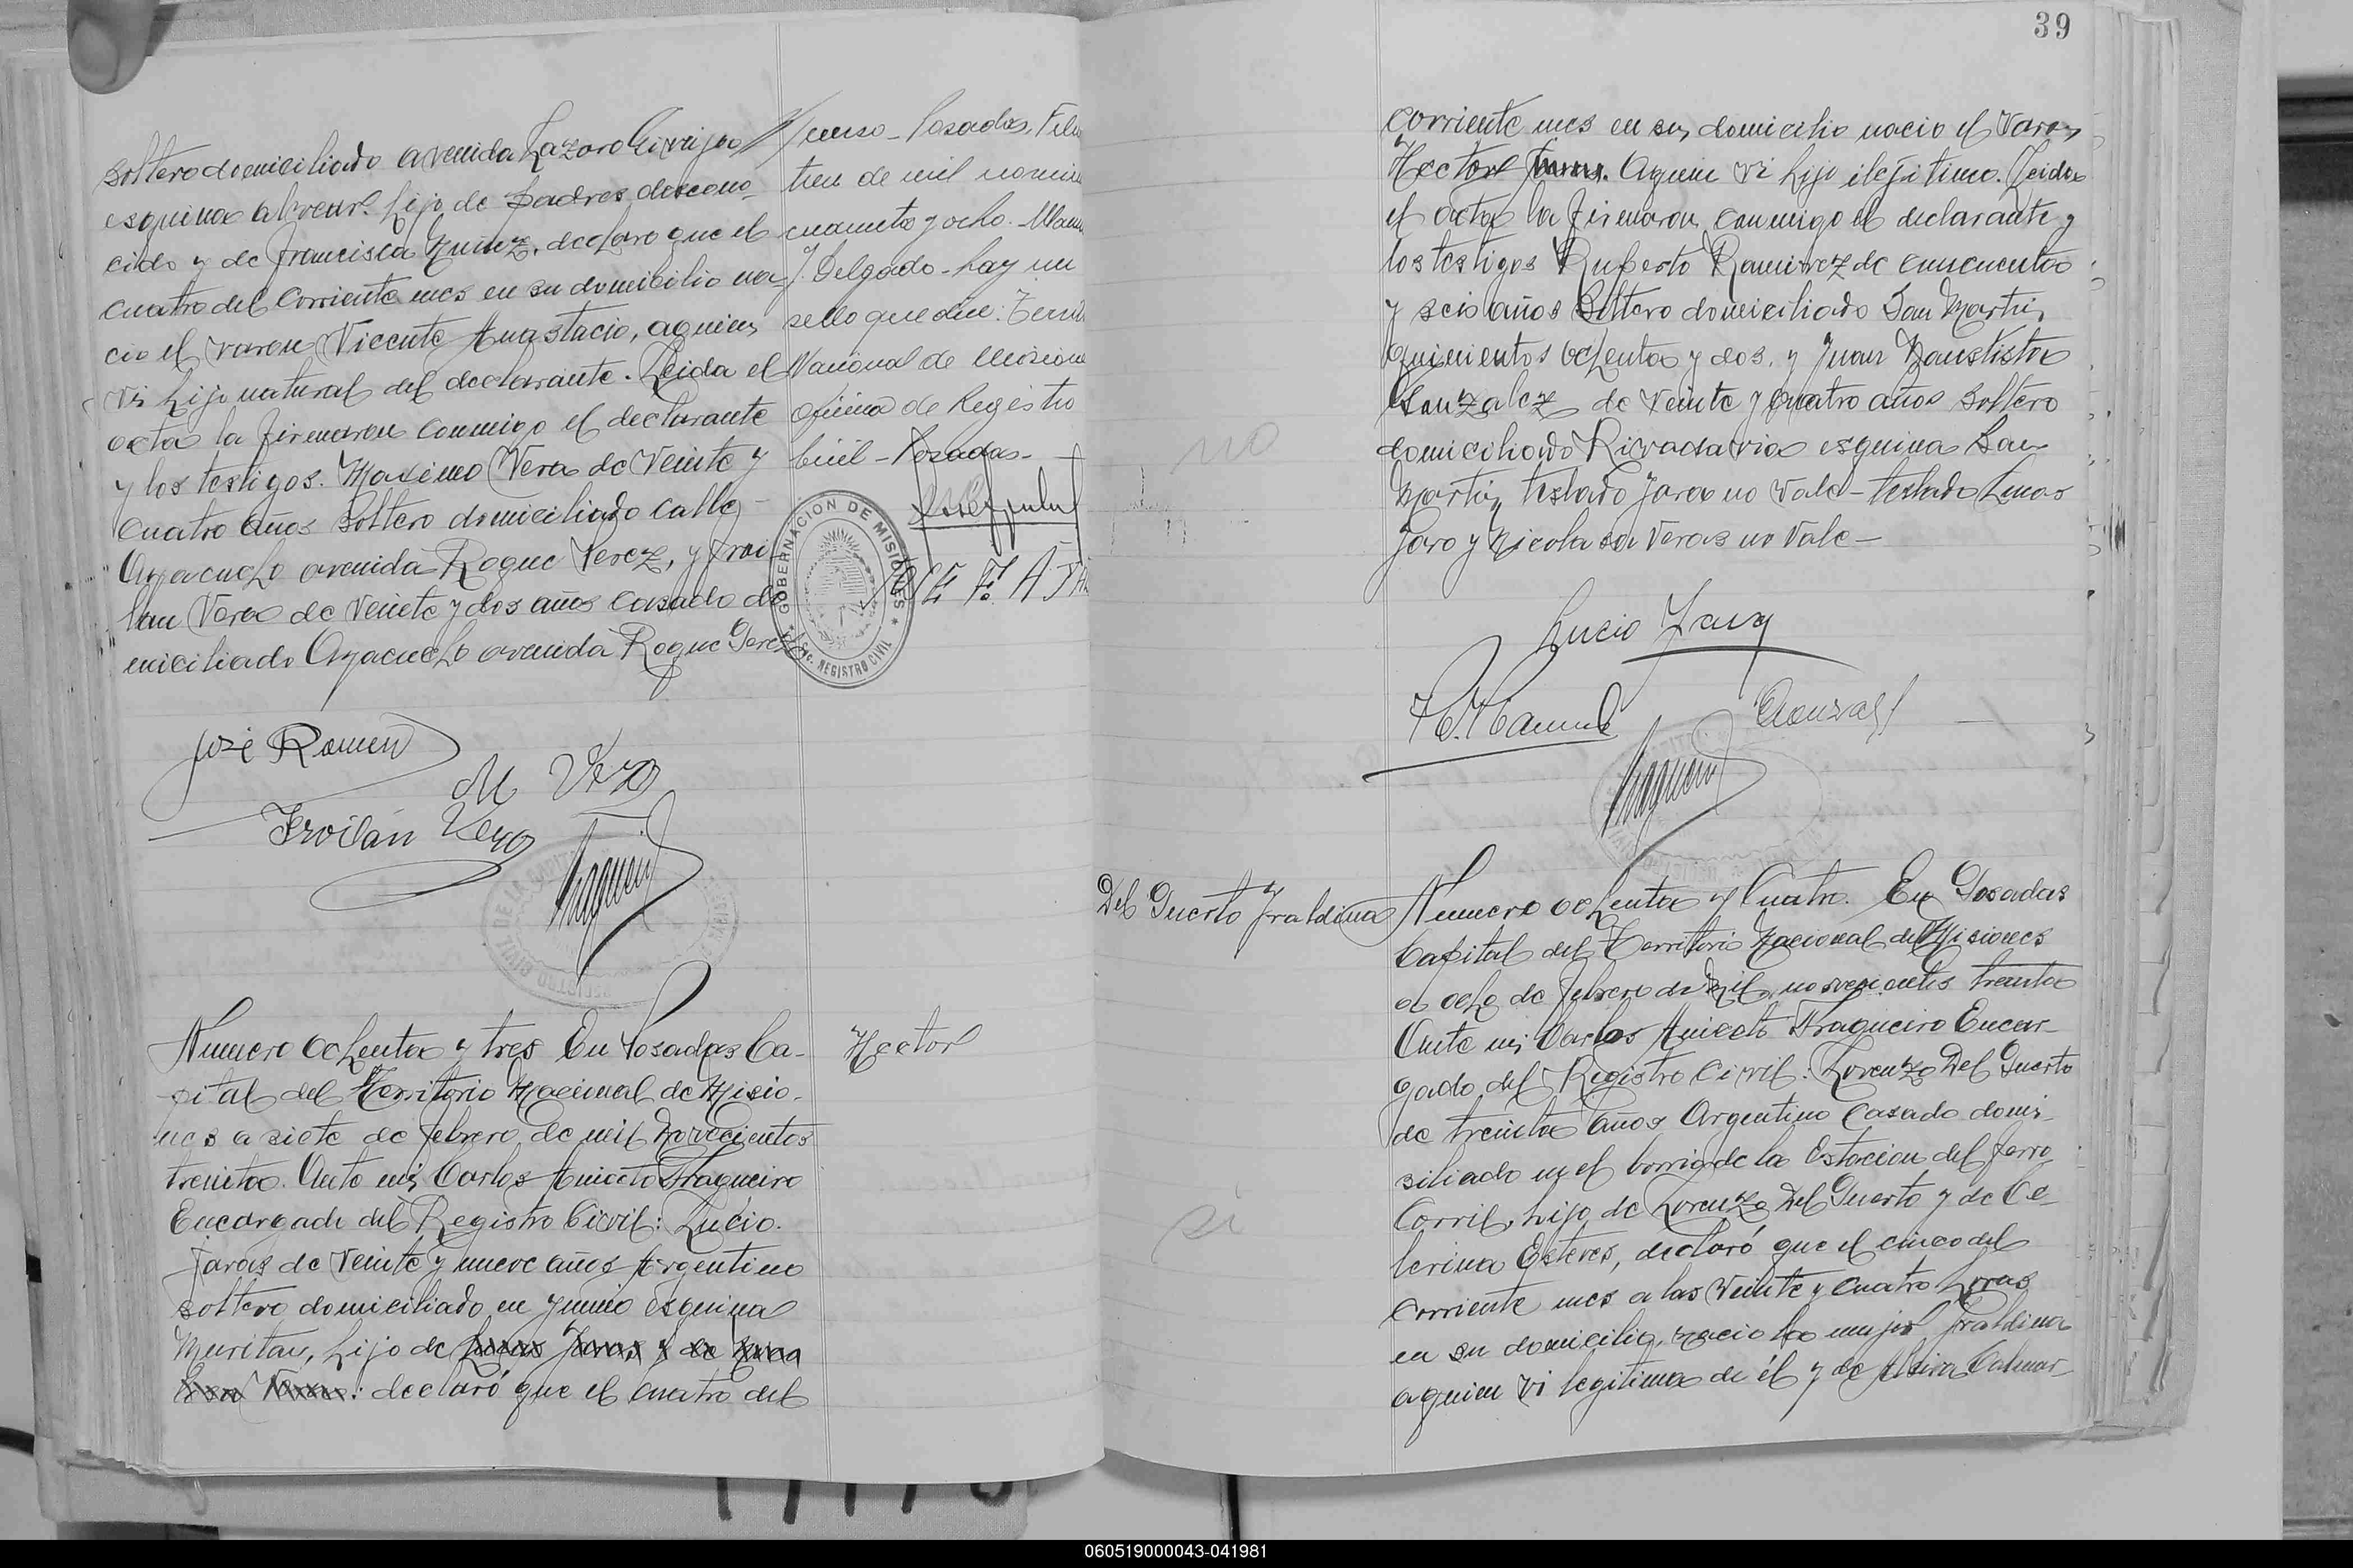 soltero domiciliado avenida Lazaro
esquina alvear. hijo de Padres descono
cido y de Francisca Nuñez, declaro que el
cuatro del Corriente mes en su domicilio na
cio el varon Vicente Anastacio, aquien
vi hijo natural del declarante. Leida el
acta la firmaron conmigo el declarante
y los testigos. Maximo Vera de Veinte y
Cuatro años soltero domiciliado calle
Ayacucho avenida Roque Perez, y Froi
lan Vera de veinte y dos años casado do
miciliado Ayacucho avenida Roque Perez
José Ramon
M Vera
Froilán Vera
- Posadas, Feb
tres de mil novecie
cuarenta y ocho. Manu
J. Delgado - hay un
sello que dice: Territ
Nacional de Misiones
oficina de Registro
Civil - Posadas -
GOBERNACION DE MISIONES
REGISTRO CIVIL
Numero Ochenta y tres En Posadas Ca-
pital del Territorio Nacional de Misio-
nes a siete de febrero de mil Novecientos
treinta. Ante mi Carlos Aniceto Fragueiro
Encargado del Registro Civil: Lucio
Jaras de Veinte y nueve años Argentino
soltero domiciliado en Junio esquina
hijo de
: declaró que el cuatro del
Hector
39
Corriente mes en su domicilio nacio el Varon
Hector. Aquien vi hijo ilejitimo. Leida
el acta la firmaron conmigo el declarante y
los testigos Ruperto Ramirez de cincuenta
y seis años Soltero domiciliado San Martin
quinientos ochenta y dos, y Juan Baustista
Gonzalez de Veinte y cuatro años soltero
domiciliado Rivadavia esquina San
Martin testado Jara no vale - testado Lucas
Jara y Nicolasa Veras no Vale -
no
Lucio Jara
Gonzalez
Del Puerto Fraldina
Numero ochenta y Cuatro. En Posadas
Capital del Territorio Nacional de Misiones
a ocho de febrero de Mil novecientos treinta
Ante mi Carlos Aniceto Fragueiro Encar-
gado del Registro Civil: Lorenzo Del Puerto
de treinta años Argentino casado domi-
siliado en el barrio de la Estacion del ferro
Carril, hijo de Lorenzo Del Puerto y de Ce-
lerina Esteves, declaró que el cinco del
Corriente mes a las Veinte y cuatro horas
en su domicilio, nacio la mujer Fraldina
aquien vi legitima de él y de Elvira Calmar-
si
060519000043-041981